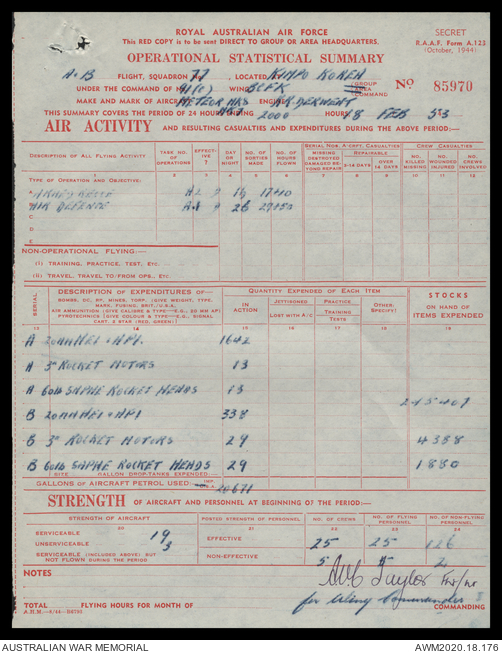 ROYAL AUSTRALIAN AIR FORCE
This RED COPY is to be sent DIRECT TO GROUP OR AREA HEADQUARTERS.
SECRET
R.A.A.F. Form A.123
(October, 1944)
OPERATIONAL STATISTICAL SUMMARY
A+B FLIGHT, SQUADRON No. 77, LOCATED KIMPO KOREA
UNDER THE COMMAND OF 91(C) WING BCFK GROUP AREA COMMAND
No 85970
MAKE AND MARK OF AIRCRAFT METEOR MK8 ENGINE R.R. DERWENT
THIS SUMMARY COVERS THE PERIOD OF 24 HOURS ENDING 2000 HOURS 8 FEB 53
AIR ACTIVITY AND RESULTING CASUALTIES AND EXPENDITURES DURING THE ABOVE PERIOD:—
DESCRIPTION OF ALL FLYING ACTIVITY
TASK NO. OF OPERATIONS
EFFECTIVE
DAY OR NIGHT
NO. OF SORTIES MADE
NO. OF HOURS FLOWN
SERIAL NOS. A'CRPT. CASUALTIES
MISSING DESTROYED DAMAGED BEYOND REPAIR
REPAIRABLE
OVER 14 DAYS
CREW CASUALTIES
NO. KILLED MISSING
NO. WOUNDED INJURED
NO. CREWS INVOLVED
TYPE OF OPERATION AND OBJECTIVE:
ARMED RECCE 16 17+10
AIR DEFENCE 26
C
D
E
NON-OPERATIONAL FLYING:—
(i) TRAINING, PRACTICE, TEST, ETC.
(ii) TRAVEL, TRAVEL TO/FROM OPS., ETC.
SERIAL
DESCRIPTION OF EXPENDITURES OF—
BOMBS, DC, RP, MINES, TORP. (GIVE WEIGHT, TYPE, MARK, FUSING, BRIT./U.S.A.
AIR AMMUNITION (GIVE CALIBRE & TYPE—E.G., 20 MM AP)
PYROTECHNICS (GIVE COLOUR & TYPE—E.G., SIGNAL CART. 2 STAR (RED, GREEN.)
QUANTITY EXPENDED OF EACH ITEM
IN ACTION
JETTISONED
LOST WITH A/C
PRACTICE
TRAINING TESTS
OTHER (SPECIFY)
STOCKS
ON HAND OF ITEMS EXPENDED
13 14 15 16 17 18 19
A 20MM HEI + API. 1642
A 3" ROCKET MOTORS 13
A 60lb SAPHE ROCKET HEADS 13
B 20MM HEI + API 338
B 3" ROCKET MOTORS 29 4358
B 60lb SAPHE ROCKET HEADS 29 1880
SIZE GALLON DROP-TANKS EXPENDED
GALLONS OF AIRCRAFT PETROL USED:— IMP. 20671
STRENGTH OF AIRCRAFT AND PERSONNEL AT BEGINNING OF THE PERIOD:—
STRENGTH OF AIRCRAFT
POSTED STRENGTH OF PERSONNEL
NO. OF CREWS
NO. OF FLYING PERSONNEL
NO. OF NON-FLYING PERSONNEL
SERVICEABLE 19
UNSERVICEABLE 3
SERVICEABLE (INCLUDED ABOVE) BUT NOT FLOWN DURING THE PERIOD
EFFECTIVE 25 25 126
NON-EFFECTIVE 5 5 2
NOTES
Taylor
for Wing Commander
COMMANDING
TOTAL FLYING HOURS FOR MONTH OF
AUSTRALIAN WAR MEMORIAL
AWM2020.18.176